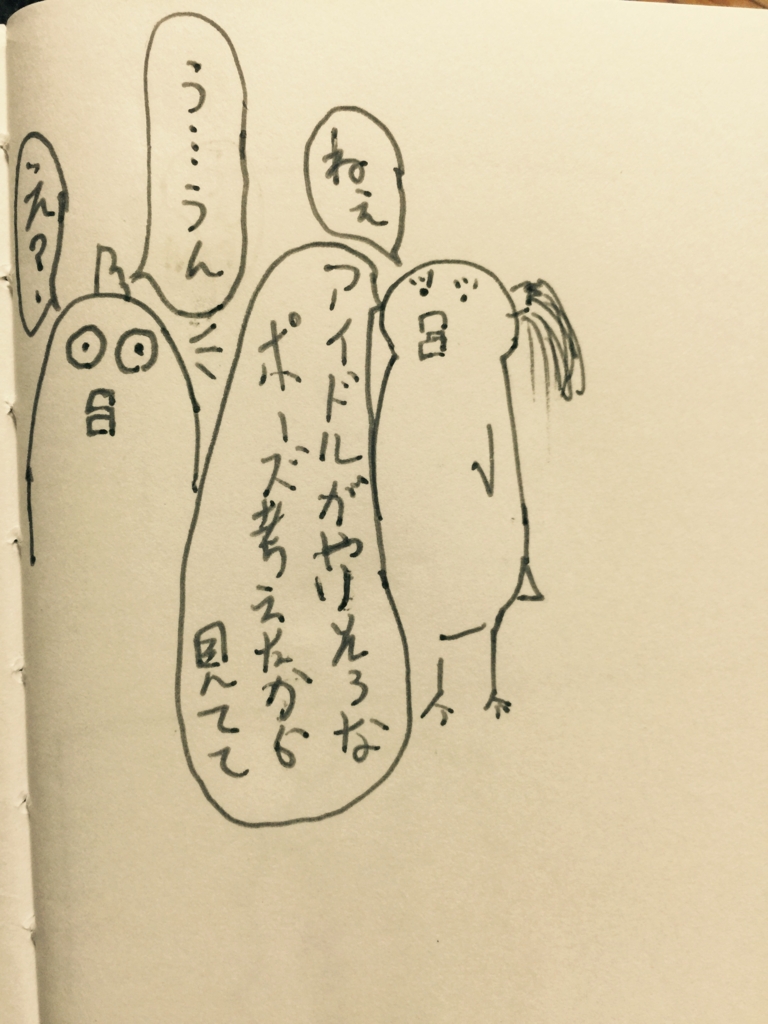 ねぇ
アイドルがやりそうな
ポーズ考えたから
見てて
う…うん
え?